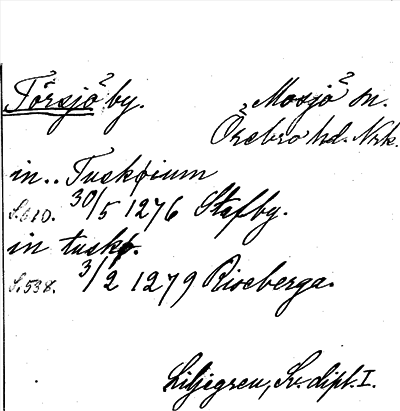 Törsjö² by.
²Mosjö² sn.
Örebro hd. Nrk.
in.. Tuskøium
S.610. 30/5 1276 Stafby.
in tuskø.
S.538. 3/2 1279 Riseberga.
Liljegren, Sv. dipl. I.